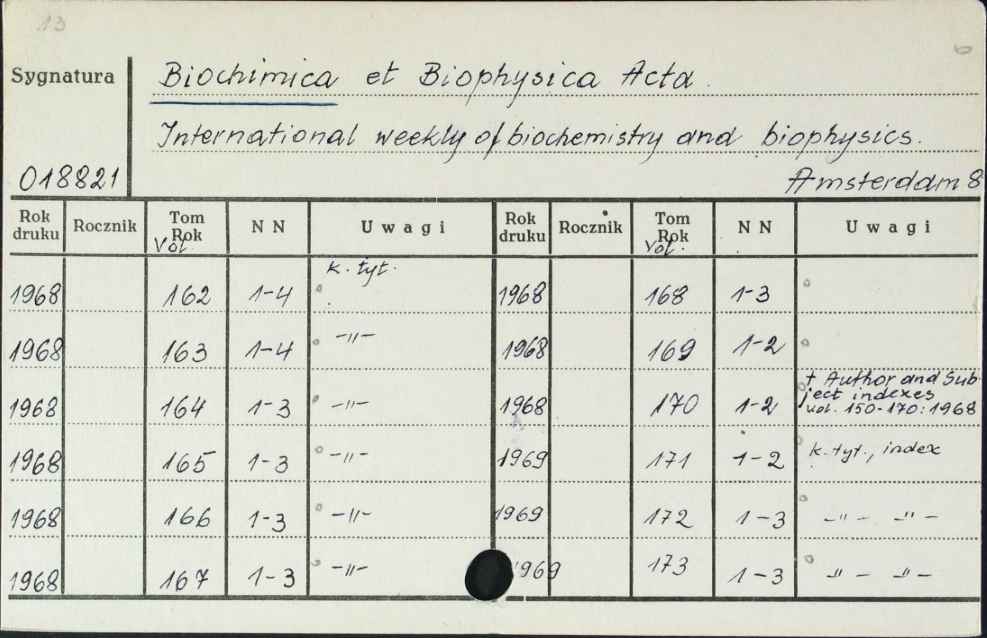 13 6
Sygnatura Biochimica et Biophysica Acta.
International weekly of biochemistry and biophysics.
018821 Amsterdam 8
Rok druku Rocznik Tom Rok Vol. NN Uwagi Rok druku Rocznik Tom Rok Vol. NN Uwagi
1968 162 1-4 k. tyt. 1968 168 1-3
1968 163 1-4 -"- 1968 169 1-2
1968 164 1-3 -"- 1968 170 1-2 + Author and Sub-
ject indexes
vol. 150-170:1968
1968 165 1-3 -"- 1969 171 1-2 k. tyt., index
1968 166 1-3 -"- 1969 172 1-3 -"- -"-
1968 167 1-3 -"- 1969 173 1-3 -"- -"-